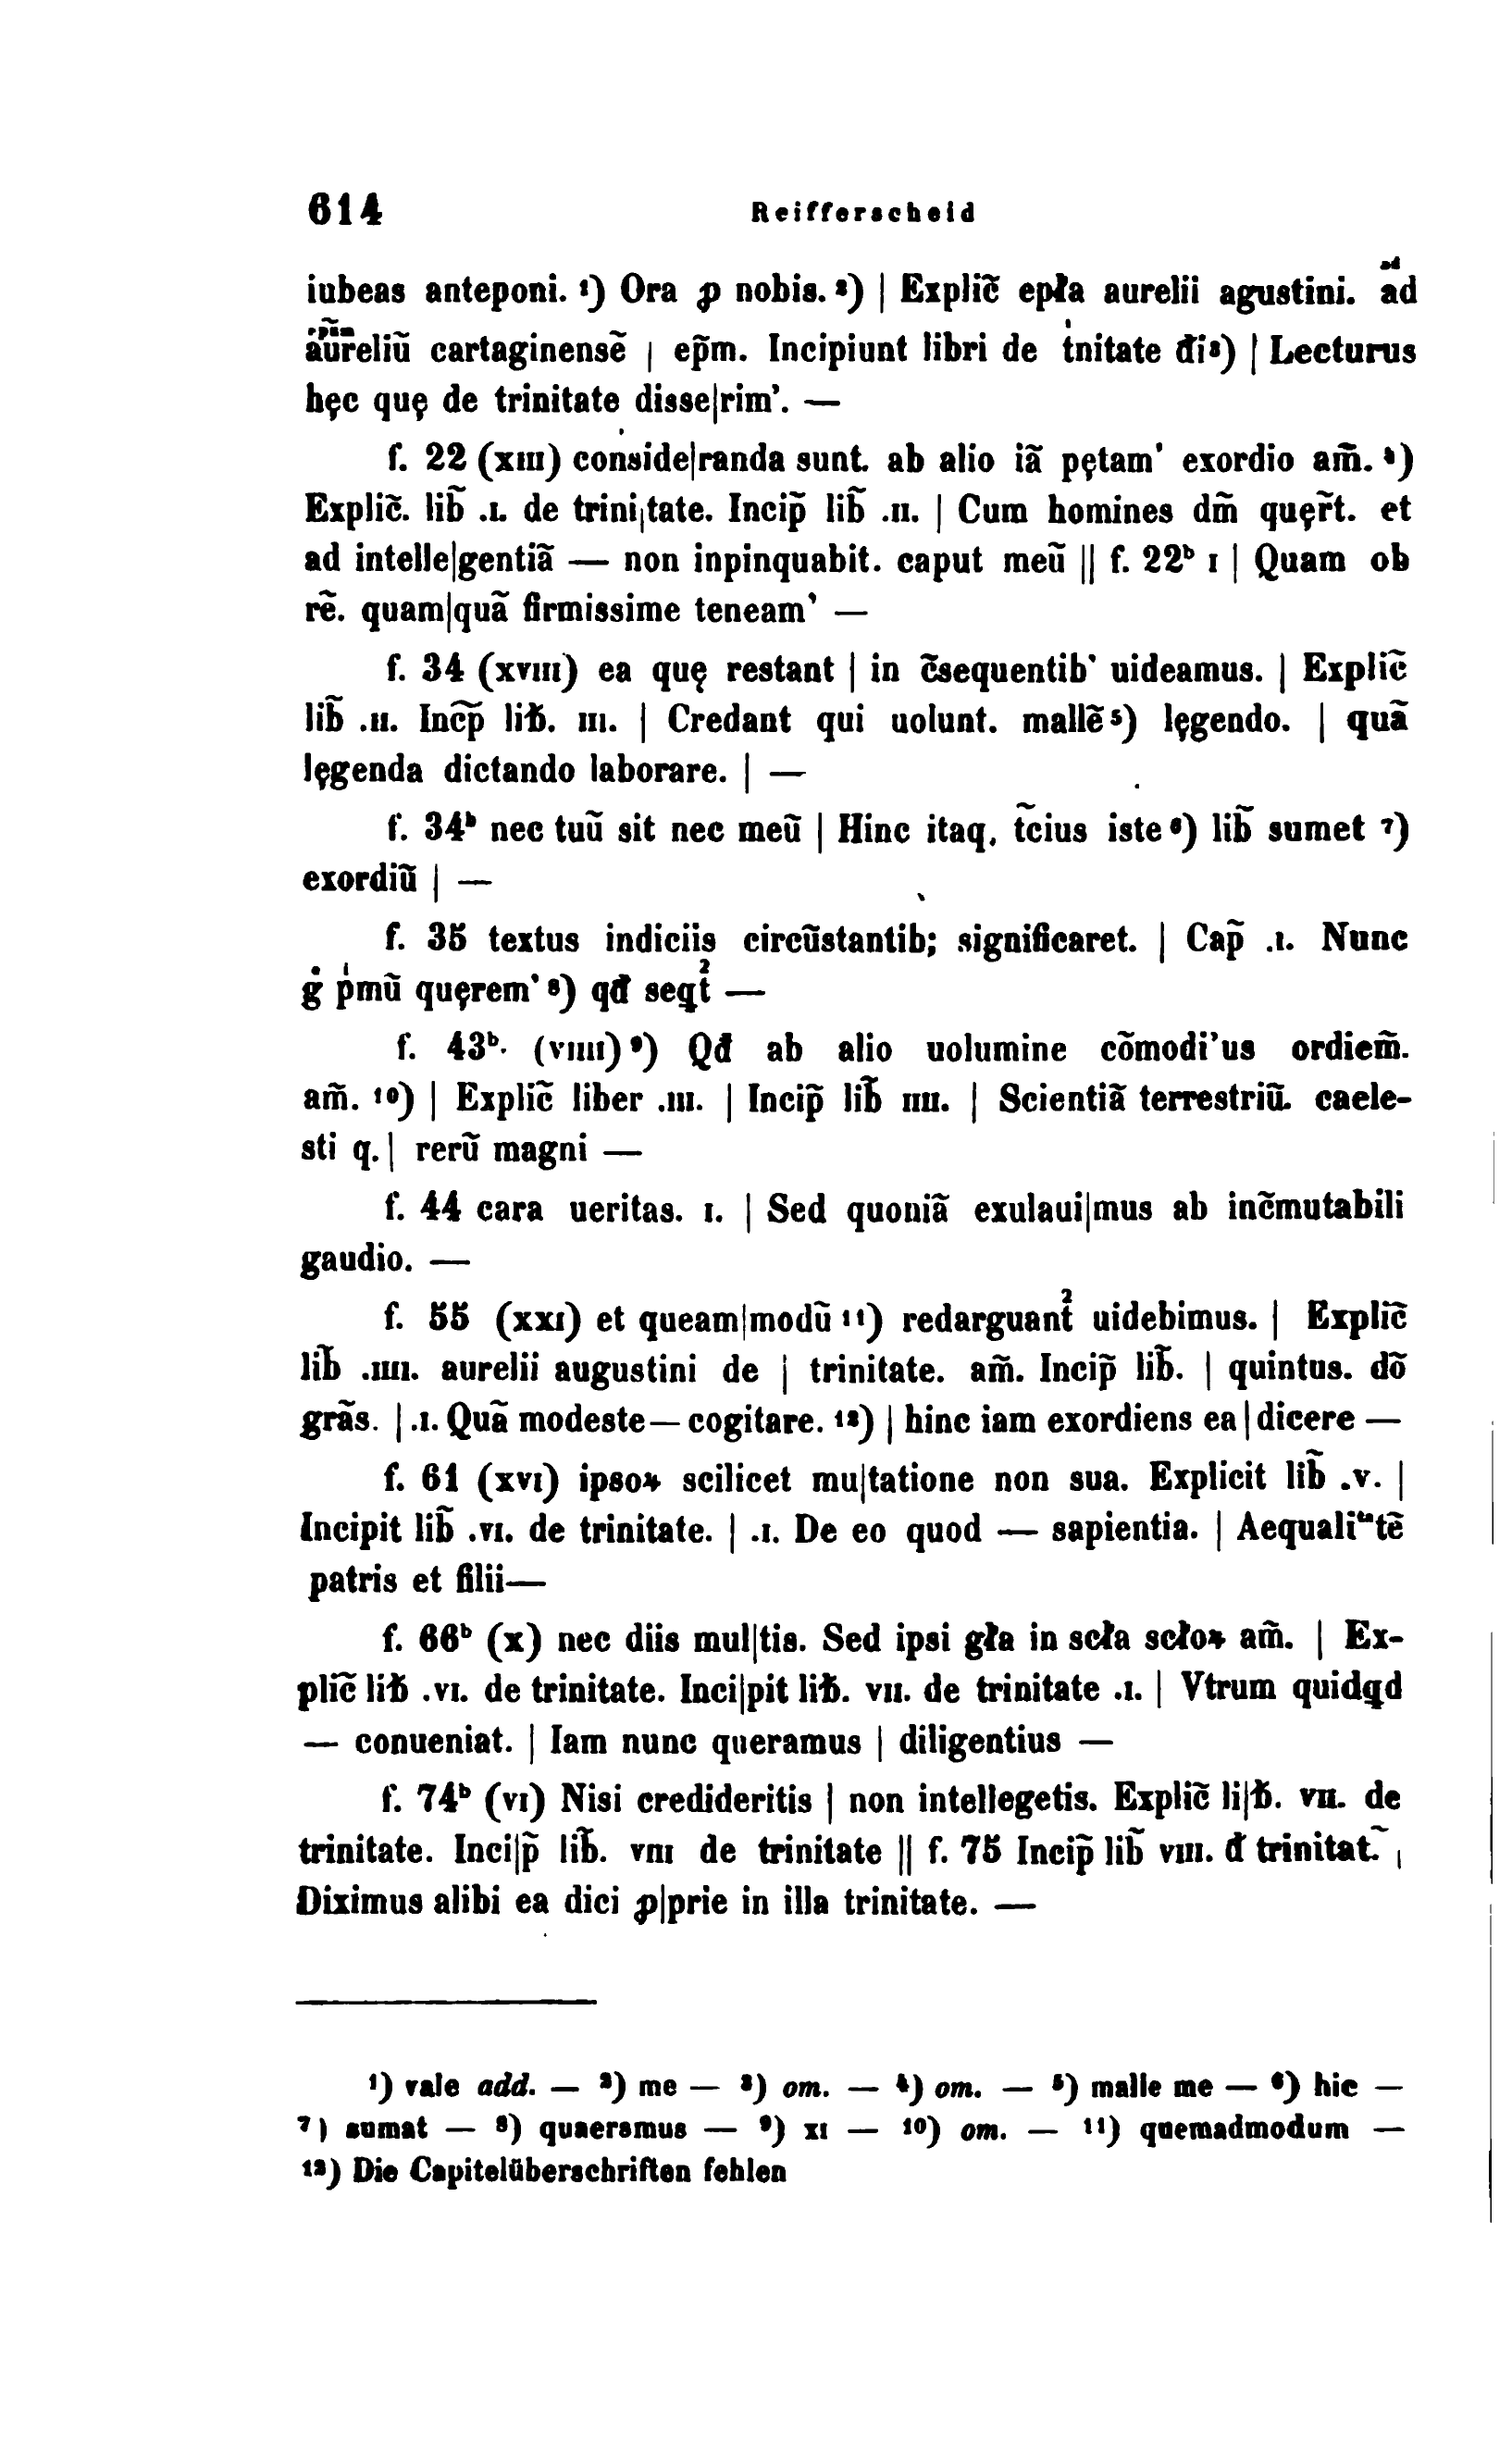 614 Reifferscheid
iubeas anteponi. ¹) Ora ꝓ nobis. ²) | Explic̃ epɫa aurelii agustini. ad
aũreliũ cartaginensẽ | ep̃m. Incipiunt libri de tnitate đi³) | Lecturus
hęc quę de trinitate disse|rim'. —
f. 22 (xııı) conside|randa sunt. ab alio iã pętam' exordio am̃. ⁴)
Explic̃. lib̃ .ı. de trini|tate. Incip̃ lib̃ .ıı. | Cum homines dm̃ quęr̃t. et
ad intelle|gentiã — non inpinquabit. caput meũ || f. 22ᵇ ı | Quam ob
rẽ. quam|quã firmissime teneam' —
f. 34 (xvııı) ea quę restant | in c̃sequentib' uideamus. | Explic̃
lib̃ .ıı. Inc̃p̃ liƀ. ııı. | Credant qui uolunt. mallẽ ⁵) lęgendo. | quã
lęgenda dictando laborare. | —
f. 34ᵇ nec tuũ sit nec meũ | Hinc itaq, tc̃ius iste ⁶) lib̃ sumet ⁷)
exordiũ | —
f. 35 textus indiciis circũstantib; significaret. | Cap̃ .ı. Nunc
g̊ pͥmũ quęrem' ⁸) qđ seqt² —
f. 43ᵇ. (vıııı) ⁹) Qđ ab alio uolumine cõmodi'us ordiem̃.
am̃. ¹⁰) | Explic̃ liber .ııı. | Incip̃ lib̃ ıııı. | Scientiã terrestriũ. caele-
sti q. | rerũ magni —
f. 44 cara ueritas. ı. | Sed quoniã exulaui|mus ab inc̃mutabili
gaudio. —
f. 55 (xxı) et queam|modũ ¹¹) redarguant² uidebimus. | Explic̃
lib̃ .ıııı. aurelii augustini de | trinitate. am̃. Incip̃ lib̃. | quintus. dõ
grãs. | .ı. Quã modeste — cogitare. ¹²) | hinc iam exordiens ea | dicere —
f. 61 (xvı) ipsoꝝ scilicet mu|tatione non sua. Explicit lib̃ .v. |
Incipit lib̃ .vı. de trinitate. | .ı. De eo quod — sapientia. | Aequaliᵗᵃtẽ
patris et filii—
f. 66ᵇ (x) nec diis mul|tis. Sed ipsi gɫa in scɫa scɫoꝝ am̃. | Ex-
plic̃ liƀ .vı. de trinitate. Inci|pit liƀ. vıı. de trinitate .ı. | Vtrum quidꝗd
— conueniat. | Iam nunc queramus | diligentius —
f. 74ᵇ (vı) Nisi credideritis | non intellegetis. Explic̃ li|ƀ. vıı. de
trinitate. Inci|p̃ lib̃. vııı de trinitate || f. 75 Incip̃ lib̃ vııı. đ trinitat.̃ |
Diximus alibi ea dici ꝓ|prie in illa trinitate. —
¹) vale add. — ²) me — ³) om. — ⁴) om. — ⁵) malle me — ⁶) hic —
⁷) sumat — ⁸) quaeramus — ⁹) xı — ¹⁰) om. — ¹¹) quemadmodum —
¹²) Die Capitelüberschriften fehlen